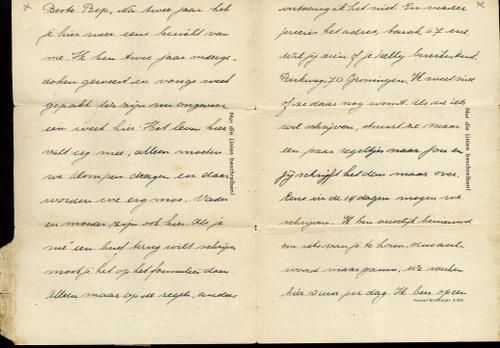 Beste Bep, Na twee jaar heb
je hier weer eens bericht van
me. Ik ben twee jaar onderge-
doken geweest en vorige week
gepakt. We zijn nu ongeveer
een week hier. Het leven hier
valt erg mee, alleen moeten
we klompen dragen en daar
worden we erg moe. Vader
en moeder zijn ook hier. Als je
me een brief terug wilt schrijven
moet je het op het formulier doen.
Alleen maar op de regels, anders
Nur die Linien beschreiben!
ontvang ik het niet. En verder
precies het adres, barak 67 enz.
Wil jij Sien of je Nelly
Parkweg 70 Groningen. Ik weet niet
of ze daar nog woont. Als die iets
wil schrijven, stuurt ze maar
een paar regeltjes naar jou en
jij schrijft het dan maar over.
Eens in de 14 dagen mogen we
schrijven. Ik ben vreselijk benieuwd
om iets van je te horen, dus ant-
woord maar gauw. We werken
hier uur per dag. Ik ben op een
Nur die Linien beschreiben!